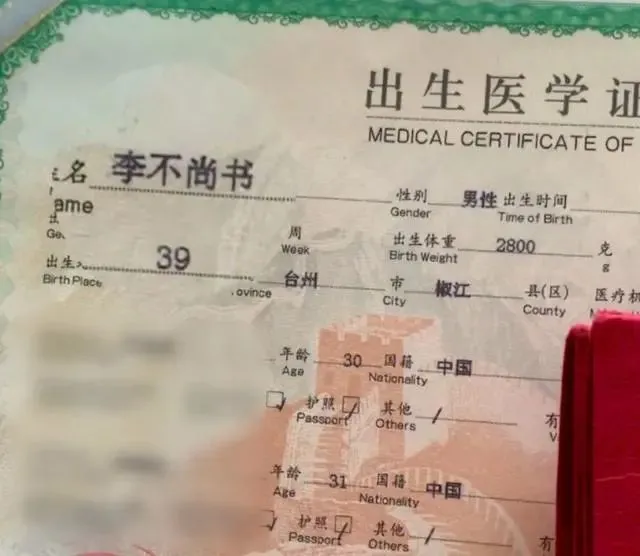 出生医学证
MEDICAL CERTIFICATE OF
名 李不尚书 性别 男性 出生时间
ame Gender Time of Birth
周 出生体重 2800 克
Week Birth Weight g
出生 39 台州 市 椒江 县(区) 医疗机
Birth Place ovince City County
年龄 30 国籍 中国
Age Nationality
护照 其他 / 有
Passport Others V
年龄 31 国籍 中国
Age Nationality
护照 其他 / 有
Passport Others